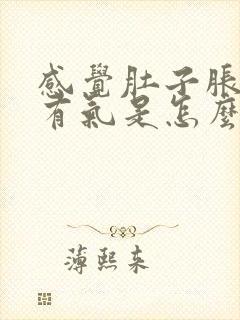 感覺肚子脹
有氣是怎麼
薄熙来